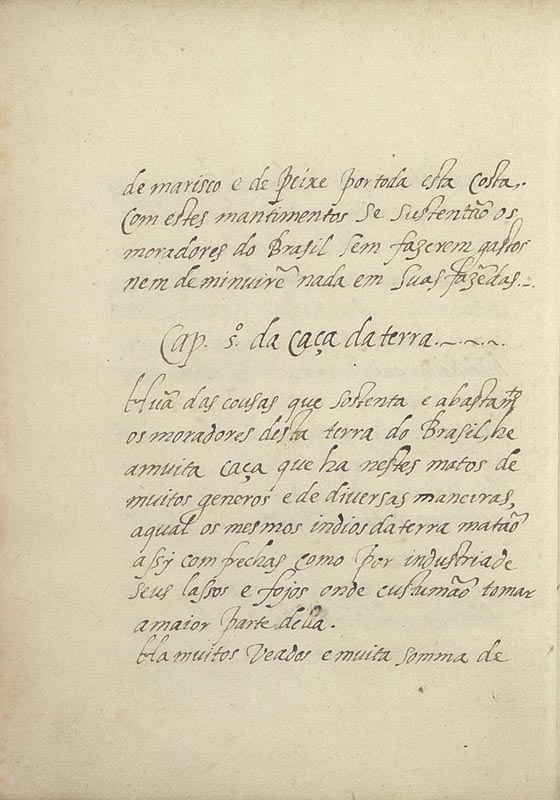 de marisco e de peixe por toda esta costa,.
Com estes mantimentos se sustentão os
moradores do Brasil sem fazerem gastos
nem deminuirẽ nada em suas fazẽdas.~.
Cap. 5.º da caça da terra.~.~.~.
Hũa das cousas que sostenta e abasta
os moradores desta terra do Brasil, he
a muita caça que ha nestes matos de
muitos generos e de diversas maneiras,
a qual os mesmos indios da terra matão
assy com frechas como por industria de
seus lassos e fojos onde custumão tomar
a maior parte della.
Ha muitos veados e muita somma de